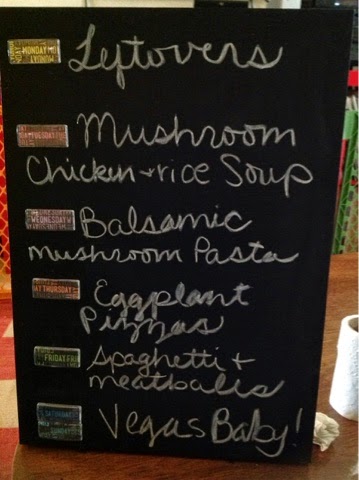 MONDAY Leftovers
TUESDAY Mushroom
Chicken + rice Soup
WEDNESDAY Balsamic
mushroom Pasta
THURSDAY Eggplant
Pizzas
FRIDAY Spaghetti +
meatballs
SATURDAY Vegas Baby!